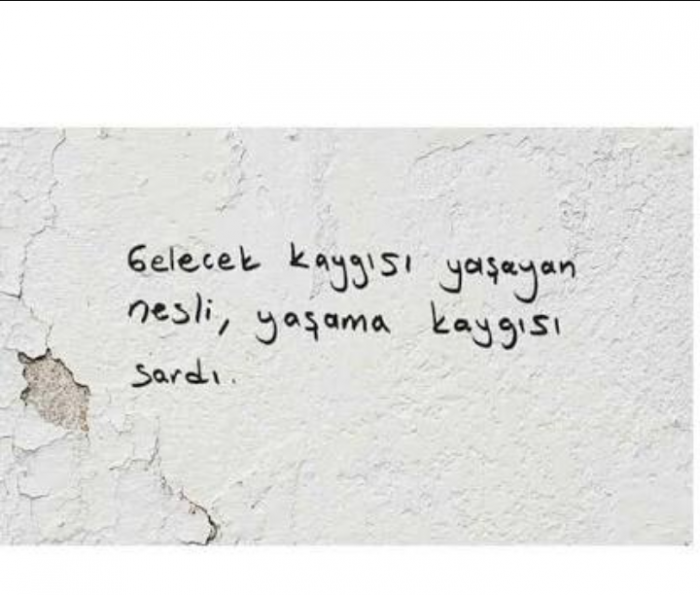 Gelecek kaygısı yaşayan
nesli, yaşama kaygısı
sardı.